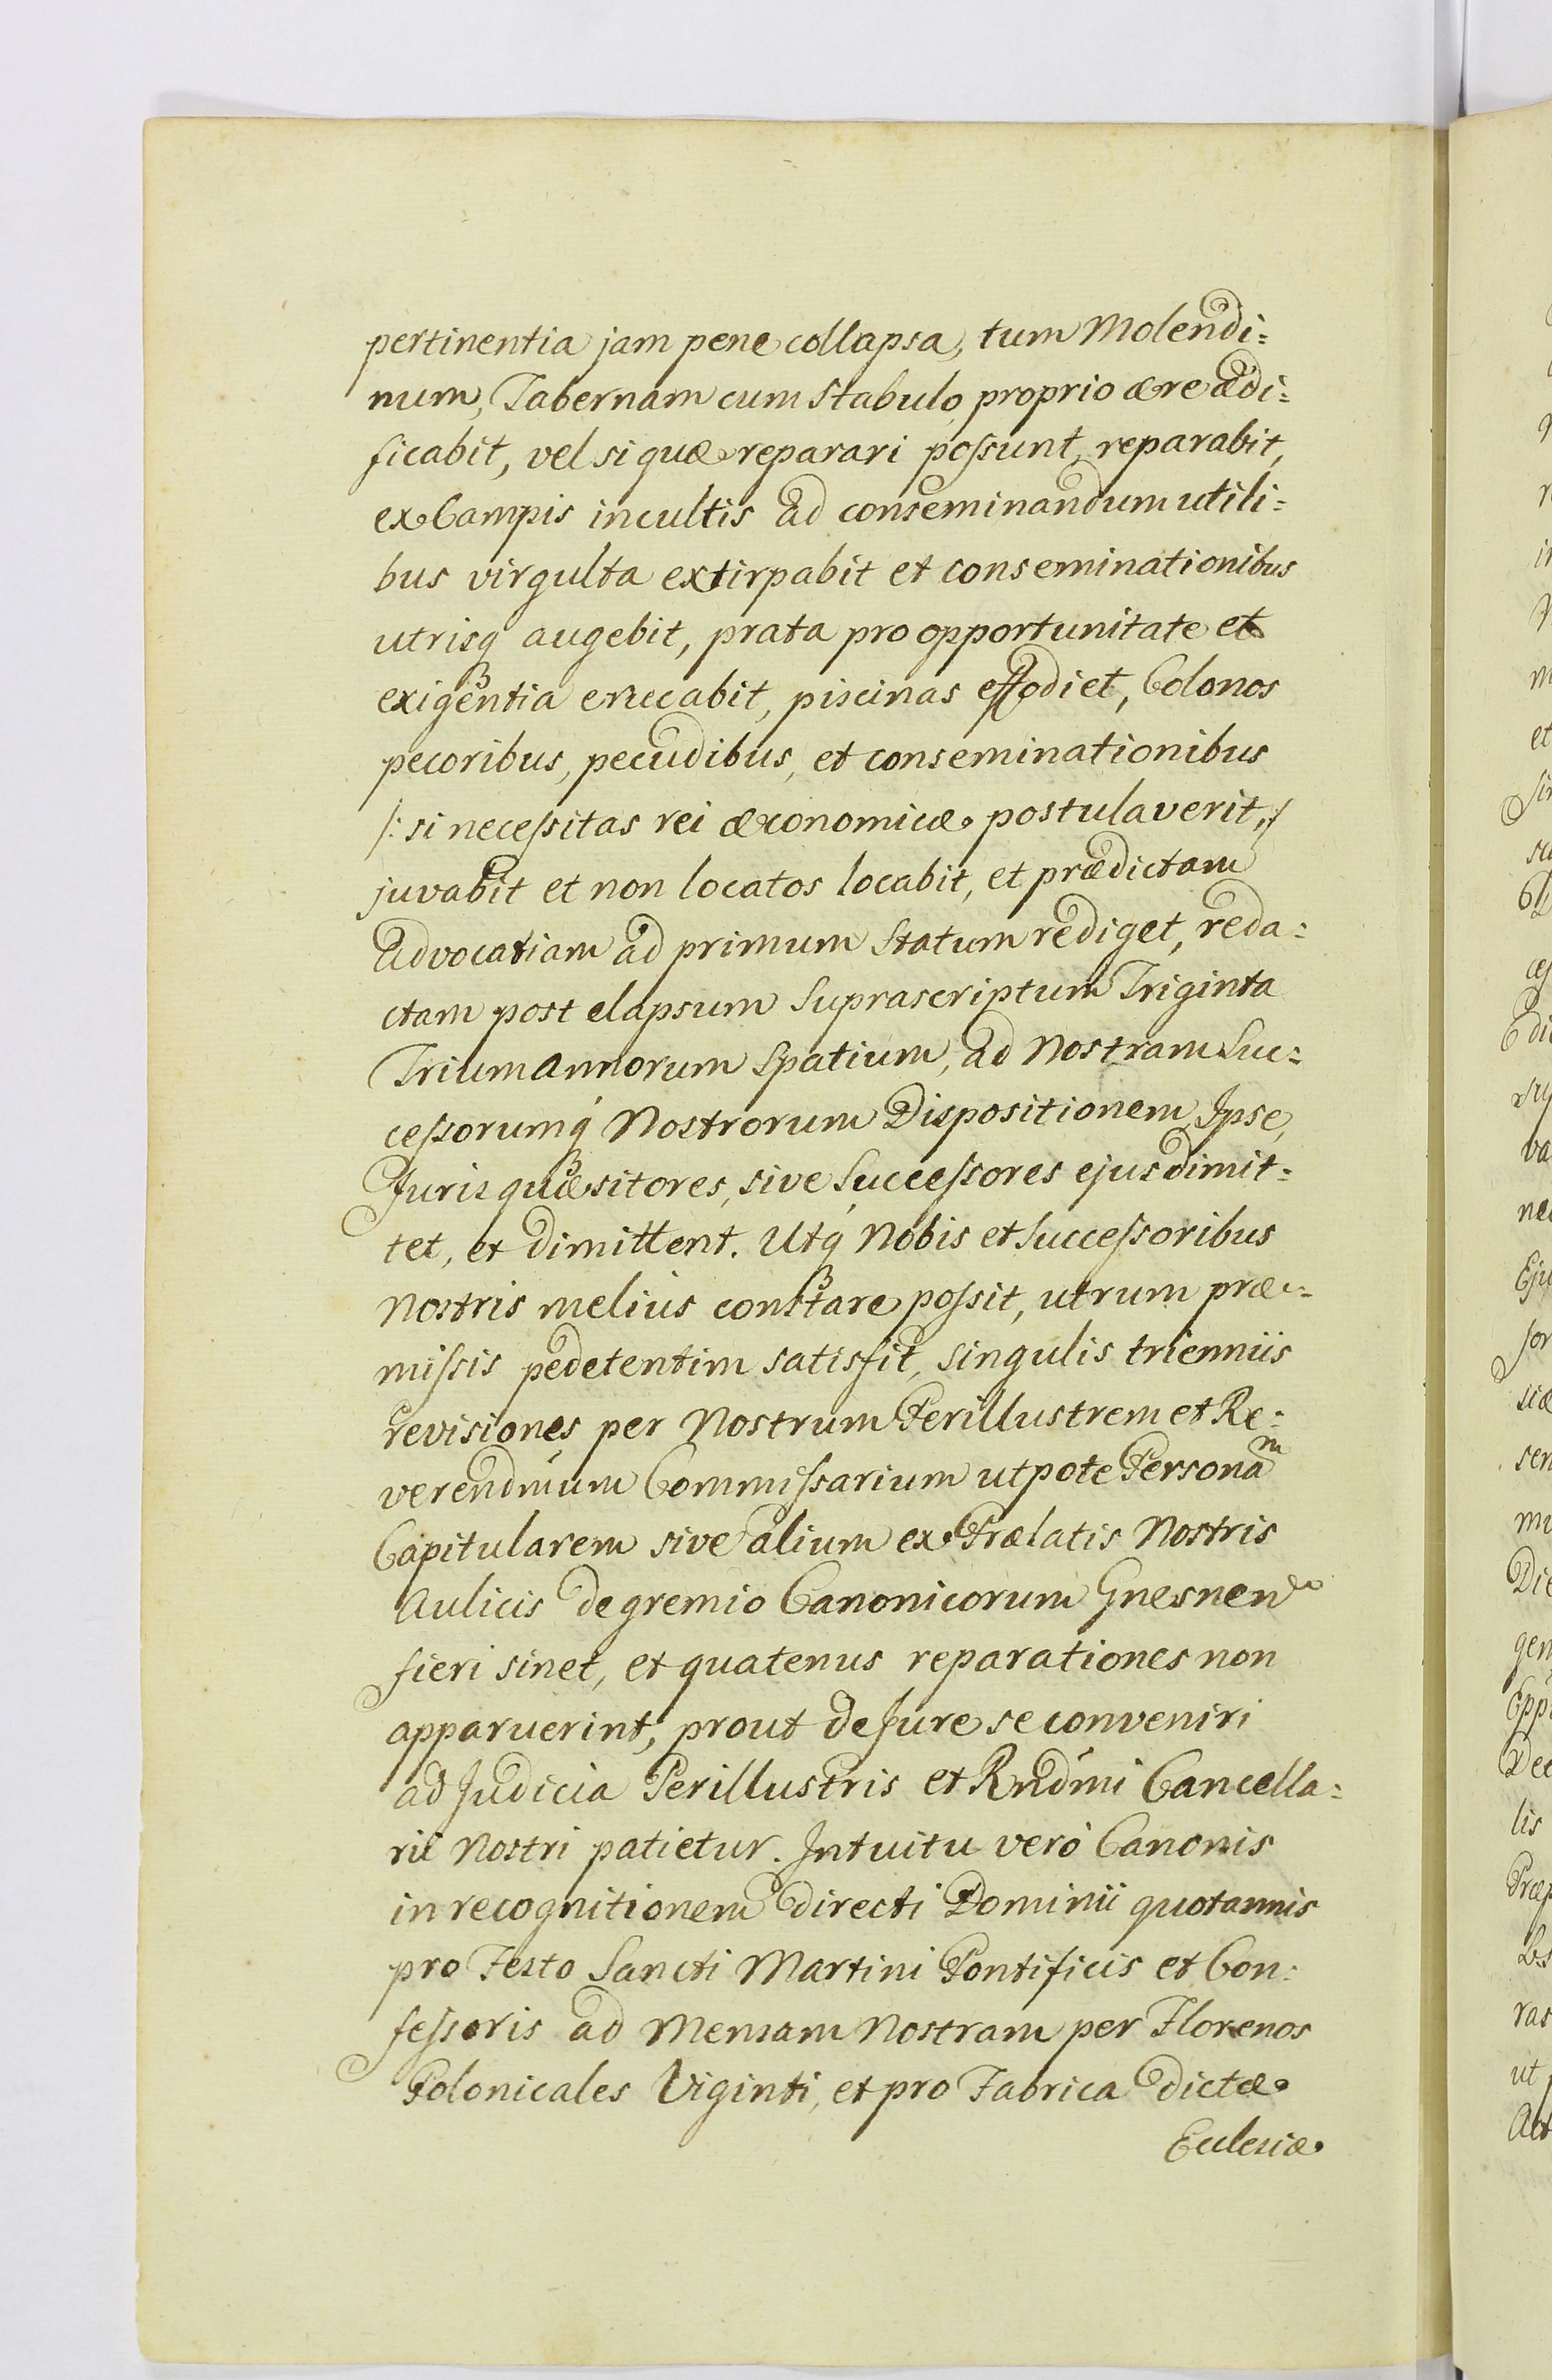 pertinentia jam pene collapsa, tum Molendi:
num, Tabernam cum stabulo proprio ære ædi:
ficabit, vel si quæ reparari poſsunt, reparabit,
ex Campis incultis ad conseminandum utili:
bus virgulta extirpabit et conseminationibus
utrisq́ augebit, prata pro opportunitate et
exigentia eruccabit, piscinas effodiet, Colonos
pecoribus, pecudibus, et conseminationibus
/: si neceſsitas rei œconomicæ postulaverit :/
juvabit et non locatos locabit, et prædictam
Advocatiam ad primum Statum rediget, reda:
ctam post elapsum Suprascriptum Triginta
Trium Annorum Spatium, ad Nostram Suc:
ceſsorumq́ Nostrorum Dispositionem Ipse,
Juris quæsitores, sive Succeſsores ejus dimit:
tet, et dimittent. Utq́ Nobis et Succeſsoribus
Nostris melius constare poſsit, utrum præ:
miſsis pedetentim satisfit, singulis trienniis
revisiones per Nostrum Perillustrem et Re:
verendmum Commiſsarium utpote Persona᷉m
Capitularem sive alium ex Prælatis Nostris
Aulicis de gremio Canonicorum Gnesnen
fieri sinet, et quatenus reparationes non
apparuerint, prout de Jure se conveniri
ad Judicia Perillustris et Rndmi Cancella:
rii Nostri patietur. Intuitu verò Canonis
in recognitionem directi Dominii quotannis
pro Festo Sancti Martini Pontificis et Con:
feſsoris ad Mensam Nostram per Florenos
Polonicales Viginti, et pro Fabrica dictæ
Ecclesiæ